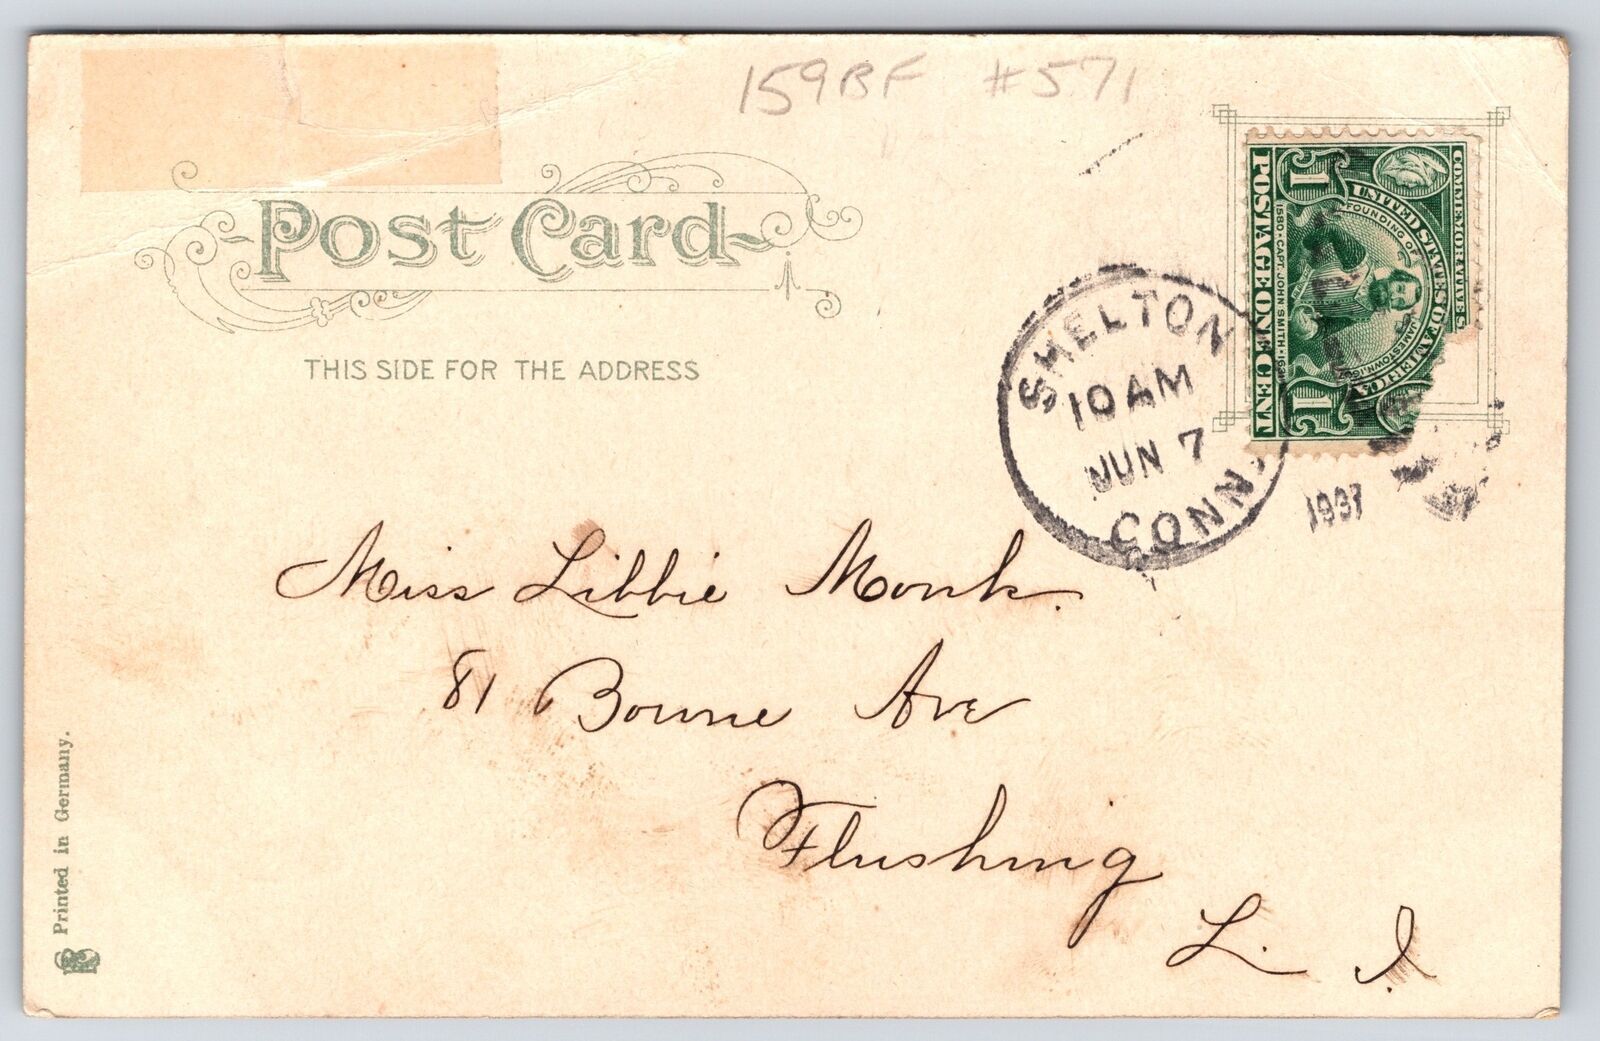 159BF #571
Post Card
THIS SIDE FOR THE ADDRESS
COMMEMORATIVE SERIES
UNITED STATES OF AMERICA
FOUNDING OF JAMESTOWN
1580 · CAPT. JOHN SMITH · 1631
1 1
POSTAGE ONE CENT
SHELTON
10 AM
JUN 7
CONN.
1907
Miss Libbie Monk.
81 Bowne Ave
Flushing
L. I.
Printed in Germany.